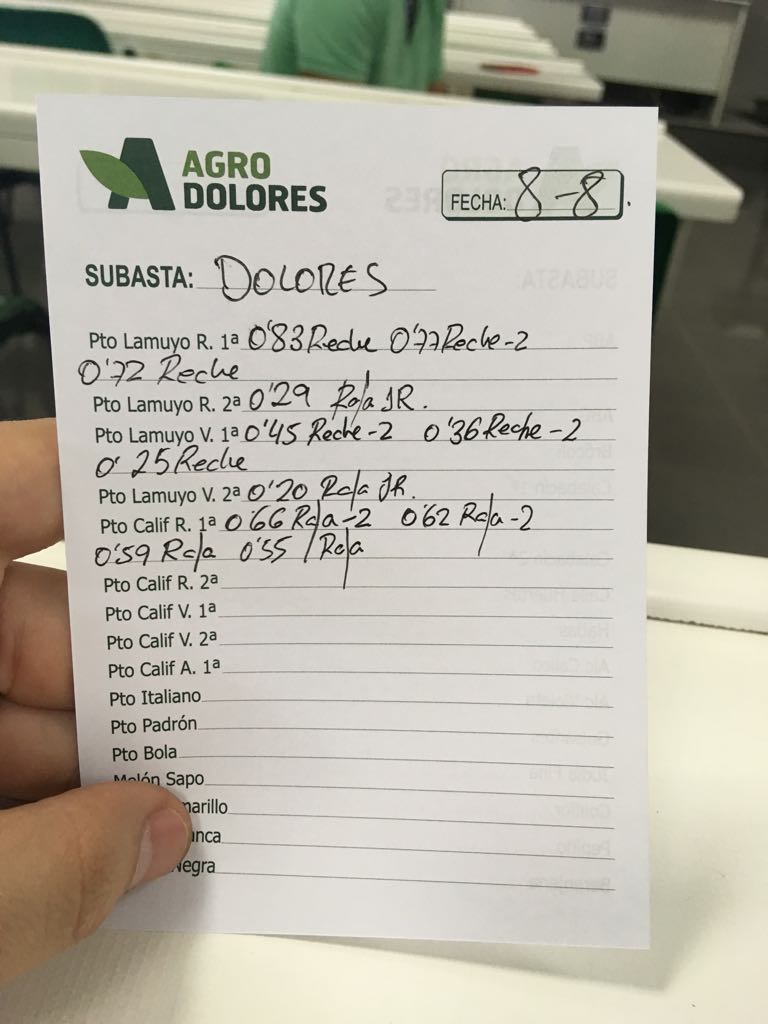 AGRO
DOLORES
FECHA: 8-8
SUBASTA: DOLORES
Pto Lamuyo R. 1ª 0'83 Reche 0'77 Reche-2
0'72 Reche
Pto Lamuyo R. 2ª 0'29 Raja JR.
Pto Lamuyo V. 1ª 0'45 Reche-2 0'36 Reche-2
0'25 Reche
Pto Lamuyo V. 2ª 0'20 Raja JR.
Pto Calif R. 1ª 0'66 Raja-2 0'62 Raja-2
0'59 Raja 0'55 Raja
Pto Calif R. 2ª
Pto Calif V. 1ª
Pto Calif V. 2ª
Pto Calif A. 1ª
Pto Italiano
Pto Padrón
Pto Bola
Melón Sapo
marillo
anca
Negra